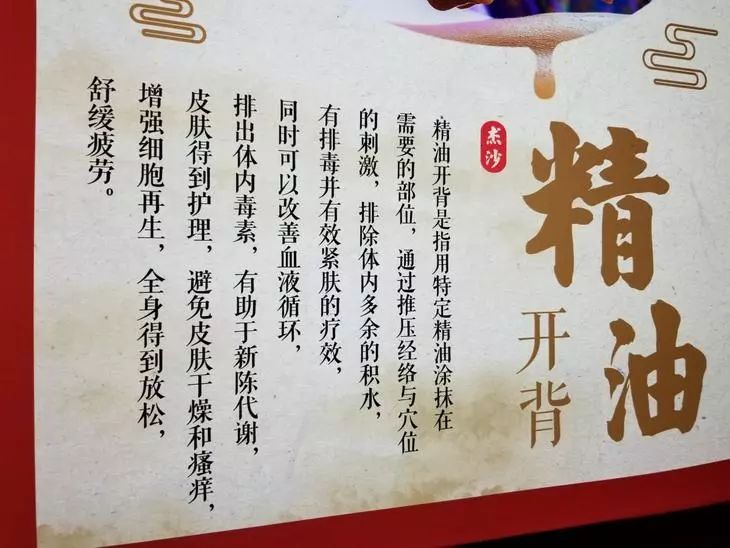 精油
开背
杰沙
精油开背是指用特定精油涂抹在
需要的部位，通过推压经络与穴位
的刺激，排除体内多余的积水，
有排毒并有效紧肤的疗效，
同时可以改善血液循环，
排出体内毒素，有助于新陈代谢，
皮肤得到护理，避免皮肤干燥和瘙痒，
增强细胞再生，全身得到放松，
舒缓疲劳。